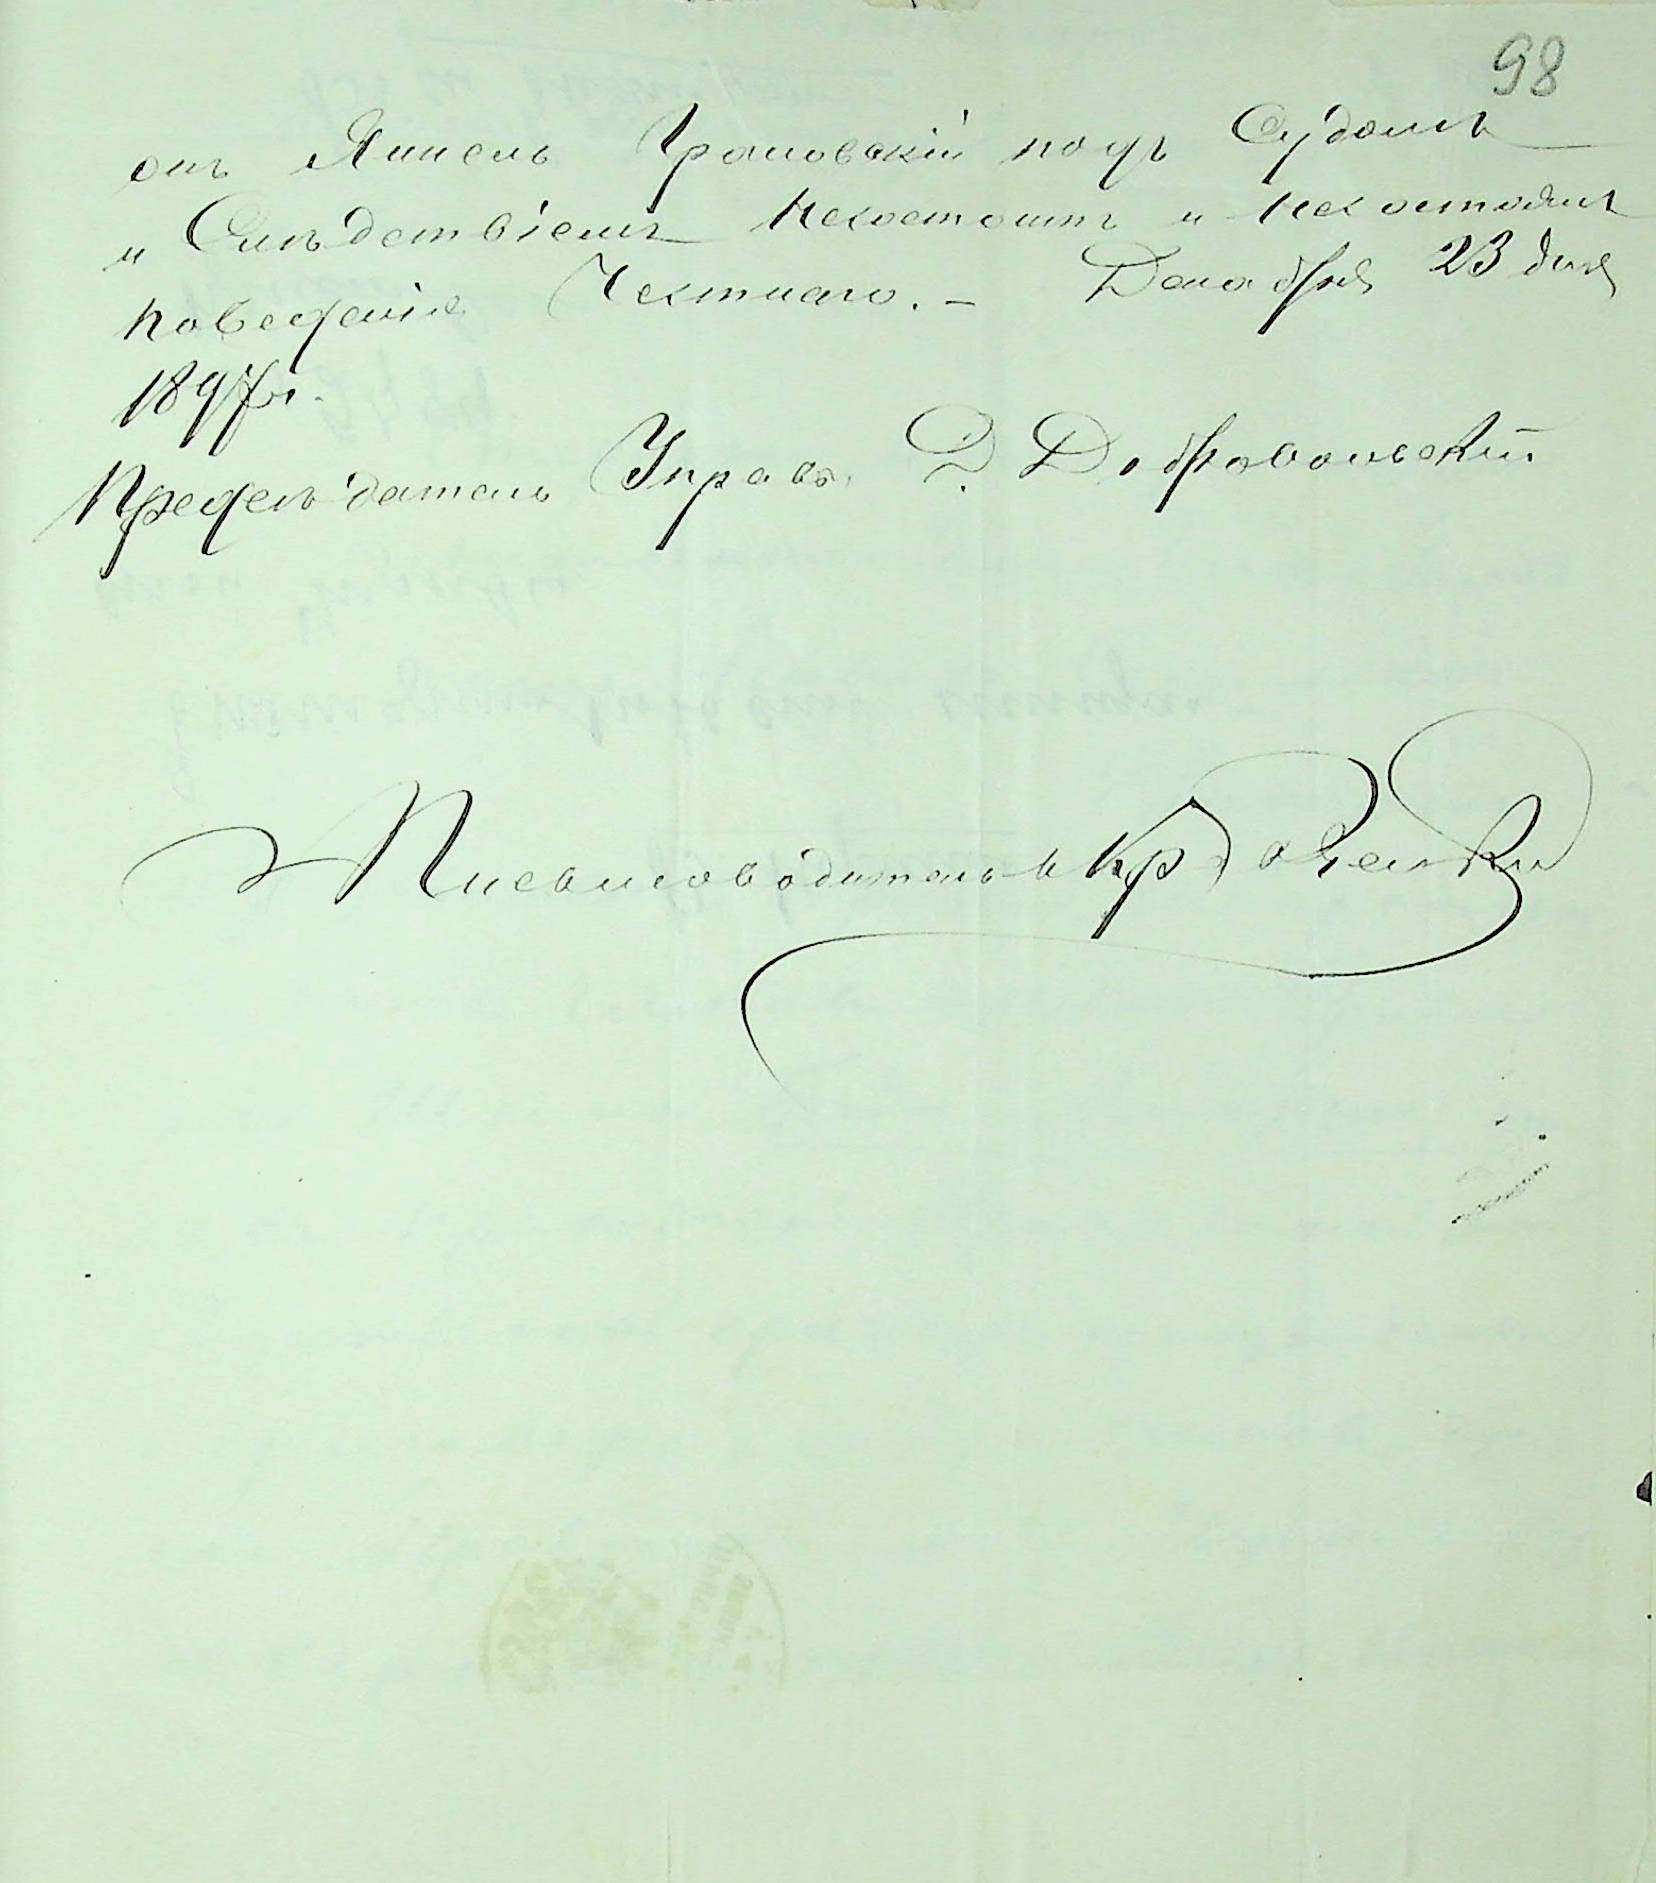 98
онъ Янкель Грановскій подъ Судомъ
и Слѣдствіемъ несостоитъ и несостоялъ
поведенія Честнаго. — Декабря 23 дня
1897 г.
Предсѣдатель Управы Э Добровольскій
Письмоводитель